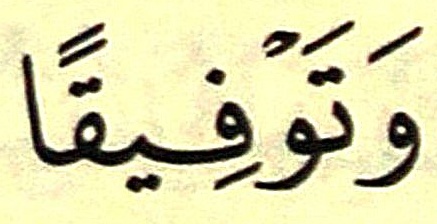 وَتَوْفِيقًا